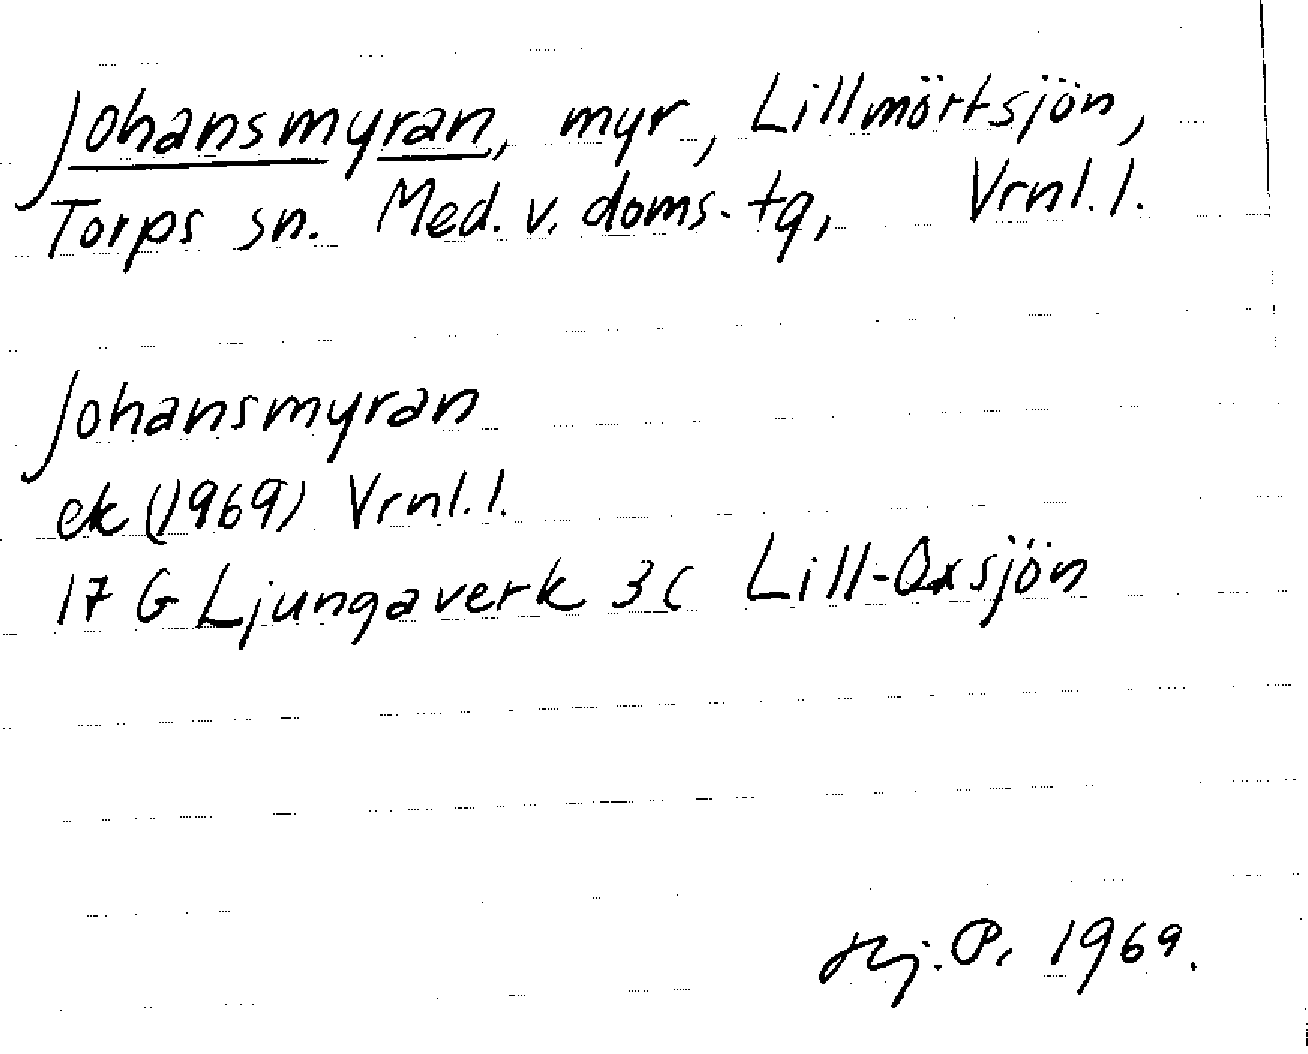 Johansmyran, myr, Lillmörtsjön,
Torps sn. Med. v. doms. tg, Vrnl. l.
Johansmyran
ek (1969) Vrnl. l.
17 G Ljungaverk 3c Lill-Oxsjön
Hj. P. 1969.